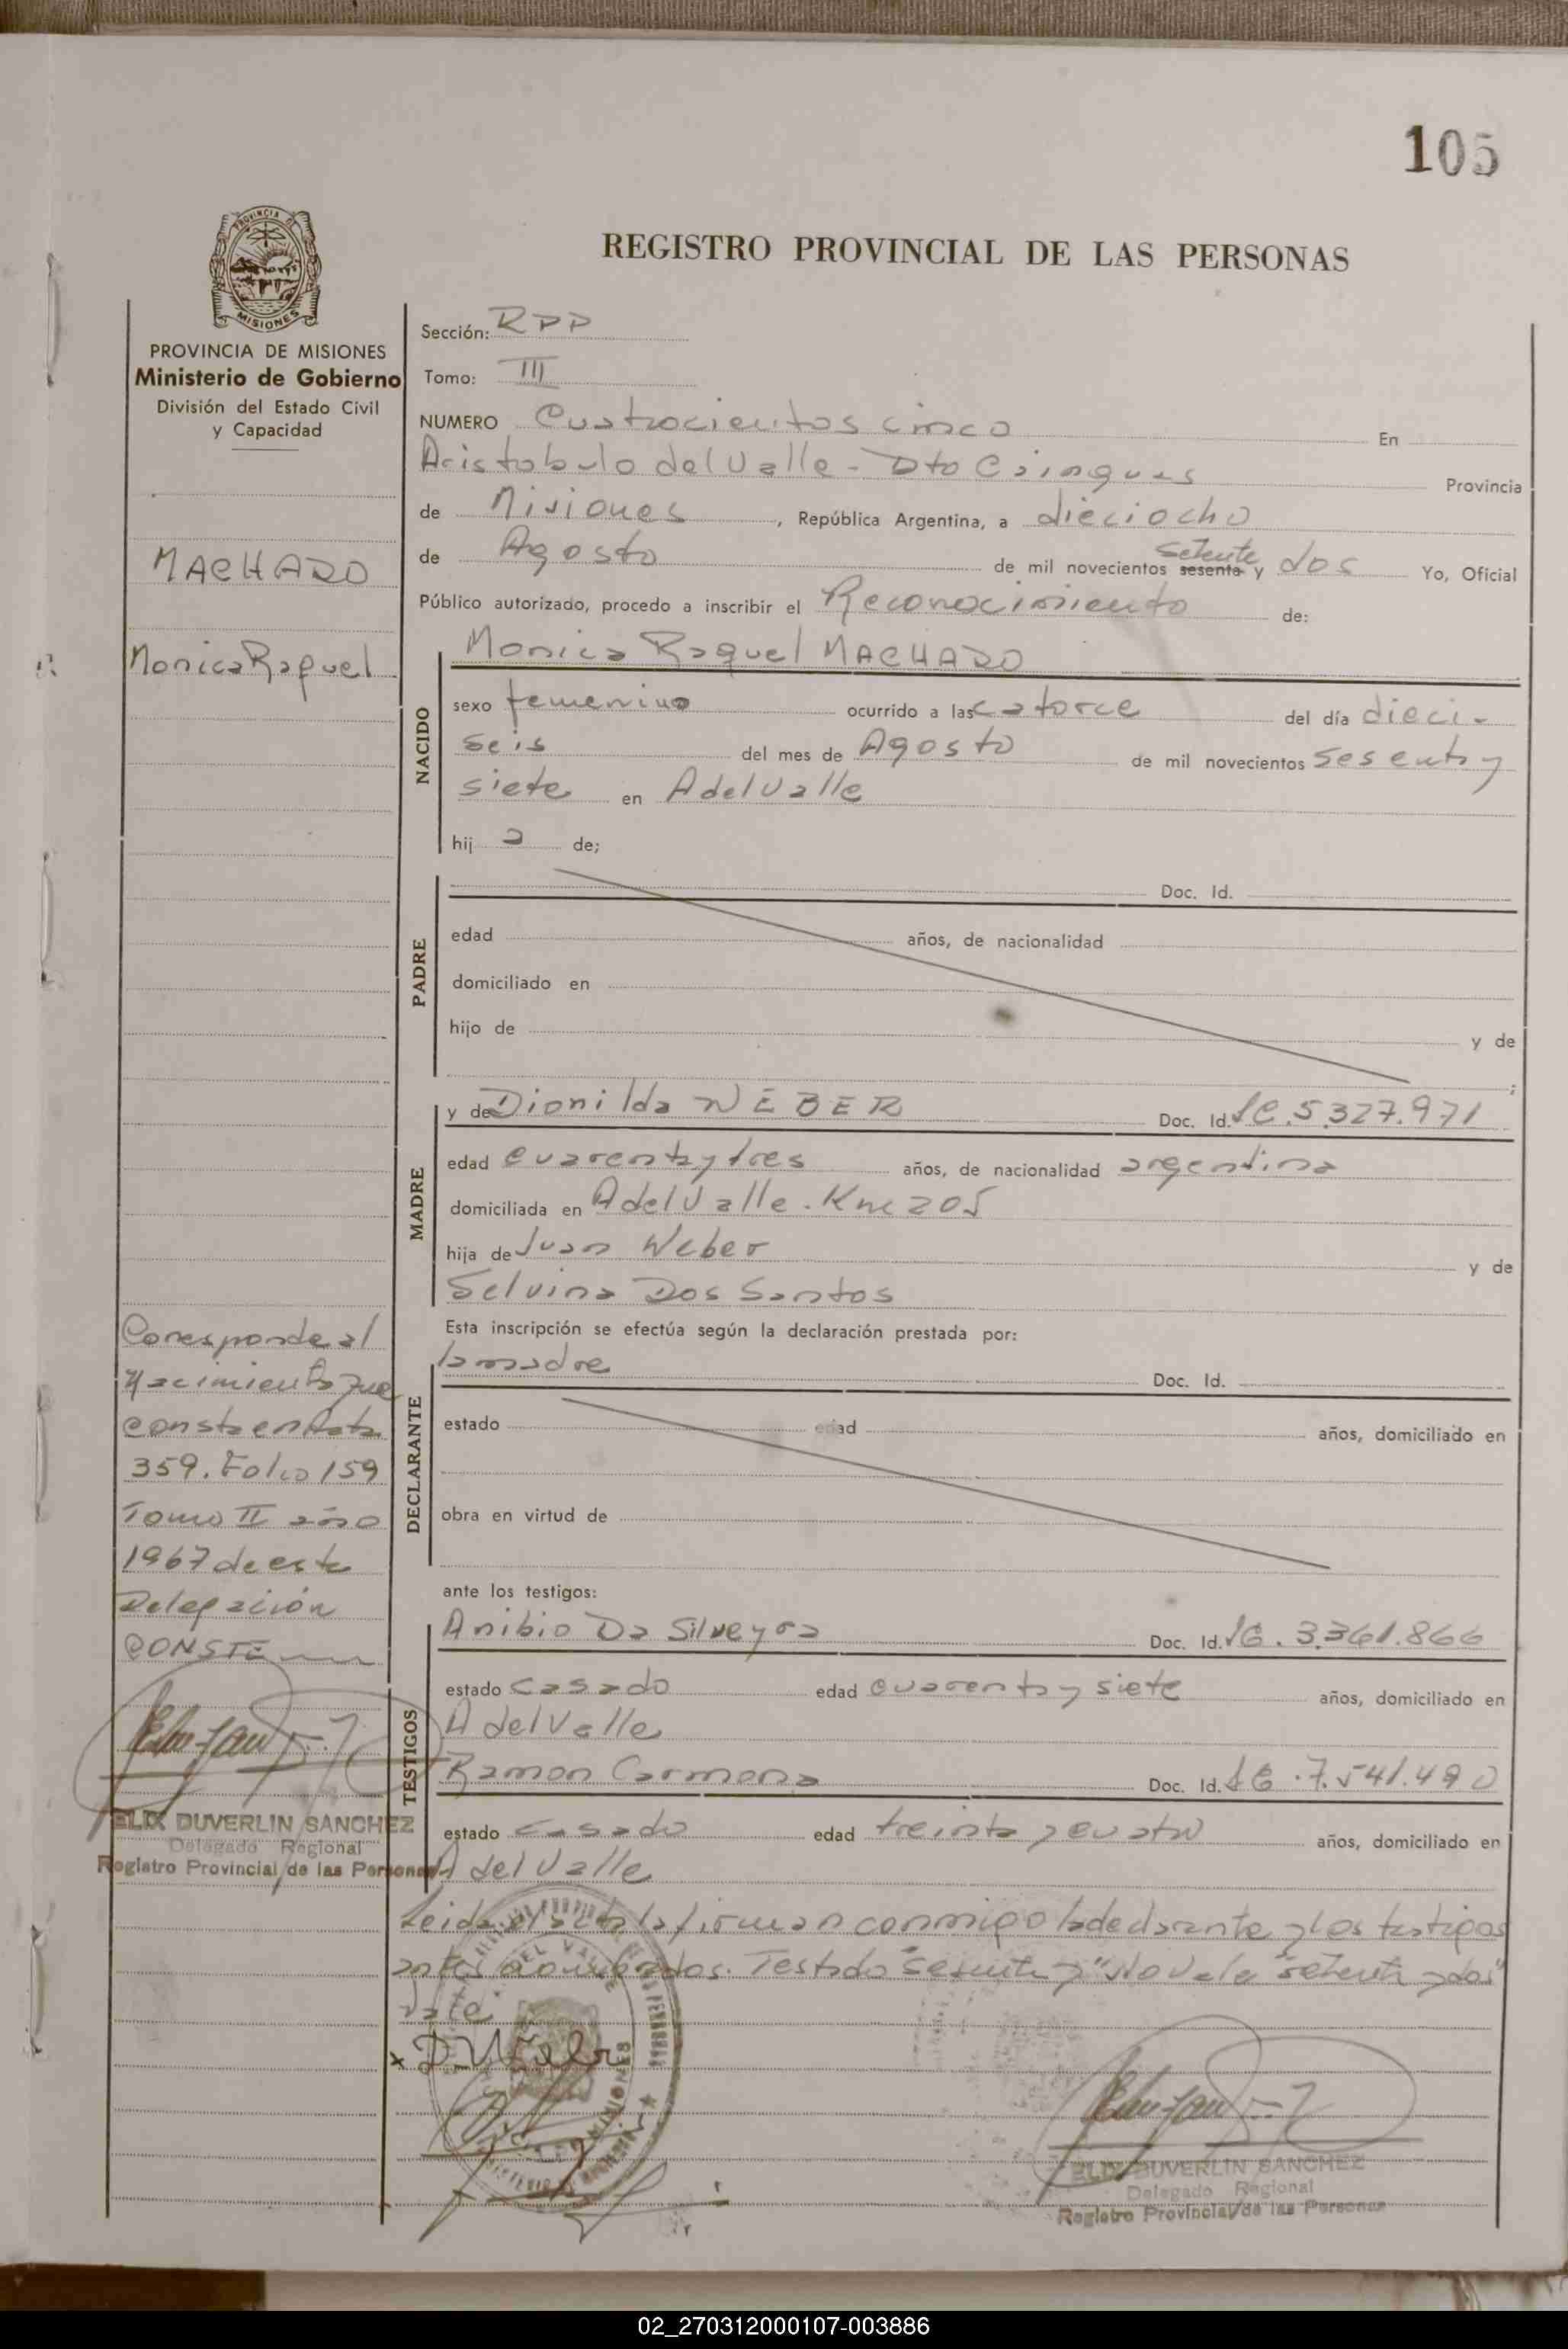 105
REGISTRO PROVINCIAL DE LAS PERSONAS
PROVINCIA DE MISIONES
Ministerio de Gobierno
División del Estado Civil
y Capacidad
MACHADO
Monica Raquel
Sección: RPP
Tomo: III
NUMERO Cuatrocientos cinco En
Aristobulo del Valle - Dto Cainguas Provincia
de Misiones, República Argentina, a dieciocho
de Agosto de mil novecientos sesenta y setenta dos Yo, Oficial
Público autorizado, procedo a inscribir el Reconocimiento de:
NACIDO
Monica Raquel MACHADO
sexo femenino ocurrido a las catorce del día dieci-
seis del mes de Agosto de mil novecientos sesenta y
siete en A del Valle
hij a de;
PADRE
Doc. Id.
edad años, de nacionalidad
domiciliado en
hijo de y de
;
MADRE
y de Dionilda WEBER Doc. Id. LC. 5.327.971
edad cuarenta y tres años, de nacionalidad argentina
domiciliada en A del Valle. Km 205
hija de Juan Weber y de
Selvina Dos Santos
Esta inscripción se efectúa según la declaración prestada por:
DECLARANTE
la madre Doc. Id.
estado edad años, domiciliado en
obra en virtud de
ante los testigos:
TESTIGOS
Anibio Da Silveyra Doc. Id. LE. 3.361.866
estado casado edad cuarenta y siete años, domiciliado en
A del Valle
Ramon Carmona Doc. Id. LE. 7.541.490
estado casado edad treinta y cuatro años, domiciliado en
A del Valle
Leida el acta la firman conmigo la declarante y los testigos
antes nombrados. Testado "sesenta y" No Vale "setenta y dos"
Vale
D Weber
Corresponde al
Nacimiento que
consta en Acta
359. Folio 159
Tomo II año
1967 de esta
Delegación
CONSTE
ELIX DUVERLIN SANCHEZ
Delegado Regional
Registro Provincial de las Personas
ELIX DUVERLIN SANCHEZ
Delegado Regional
Registro Provincial de las Personas
02_270312000107-003886